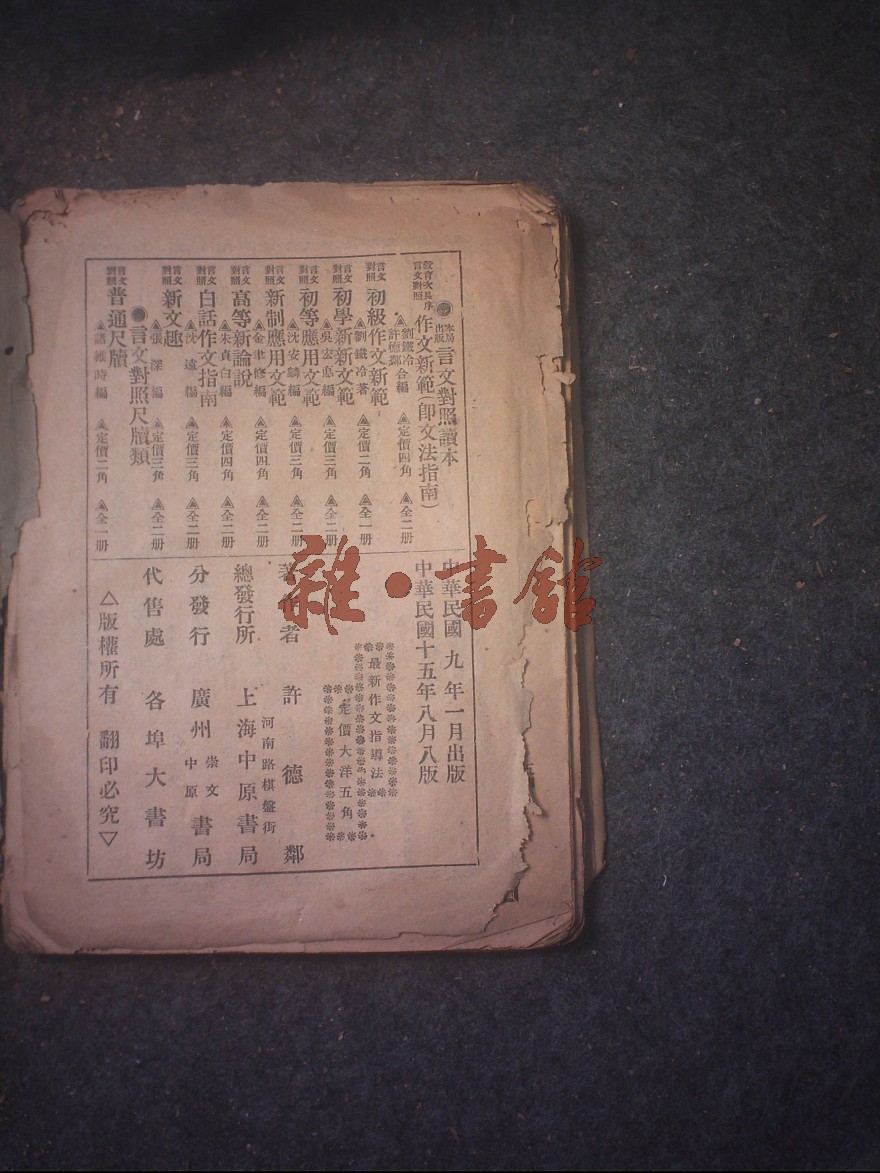 ●本局出版言文對照讀本
教育次長序言文對照作文新範(卽文法指南)
劉鐵冷許德鄰合編 定價四角 全二册
言文對照初級作文新範
劉鐵冷著 定價二角 全一册
言文對照初學新文範
吳宏應編 定價三角 全二册
言文對照初等應用文範
沈安麟編 定價三角 全二册
言文對照新制應用文範
金聿修編 定價四角 全二册
言文對照高等新論說
朱貞白編 定價四角 全二册
言文對照白話作文指南
沈遠編 定價三角 全二册
言文對照新文趣
張深編 定價三角 全二册
●言文對照尺牘類
言文對照普通尺牘
諸維時編 定價二角 全一册
中華民國九年一月出版
中華民國十五年八月八版
最新作文指導法
定價大洋五角
著作者 許德鄰
總發行所 上海河南路棋盤街中原書局
分發行 廣州崇文中原書局
代售處 各埠大書坊
△版權所有 翻印必究▽
雜·書館